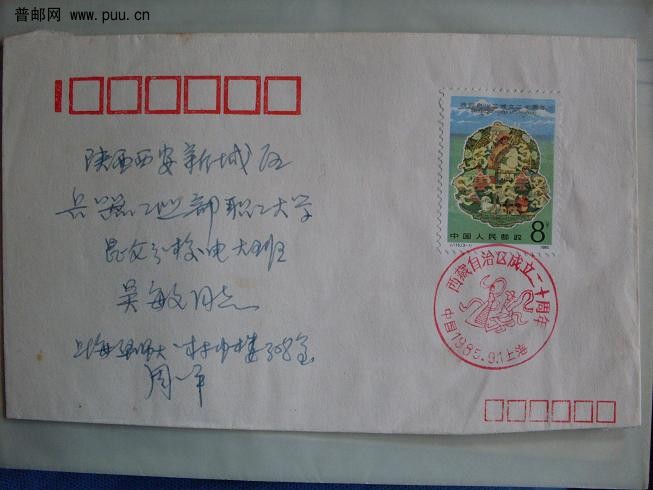 普邮网 www.puu.cn
西藏自治区成立二十周年
8分
中国人民邮政
1985
J.116.(3-1)
西藏自治区成立二十周年
中国1985.9.1上海
陕西西安新城区
兵器工业部职工大学
昆仑分校电大班
吴敏同志
周一平